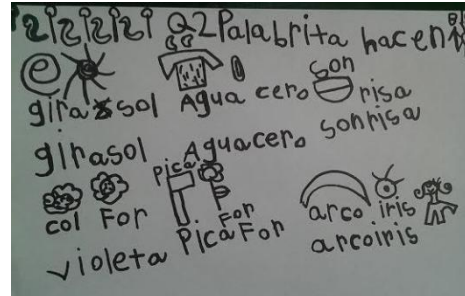 2 Palabrita hacen
gira sol Agua cero son risa
girasol Aguacero sonrisa
col For Pica For arco iris
violeta PicaFor arcoiris